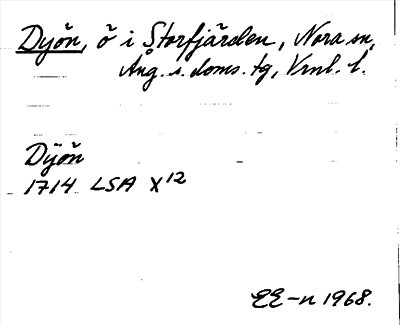 Dyön, ö i Storfjärden, Nora sn,
Ång. s. doms. tg, Vrnl. l.
Dÿön
1714 LSA X12
EE-n 1968.